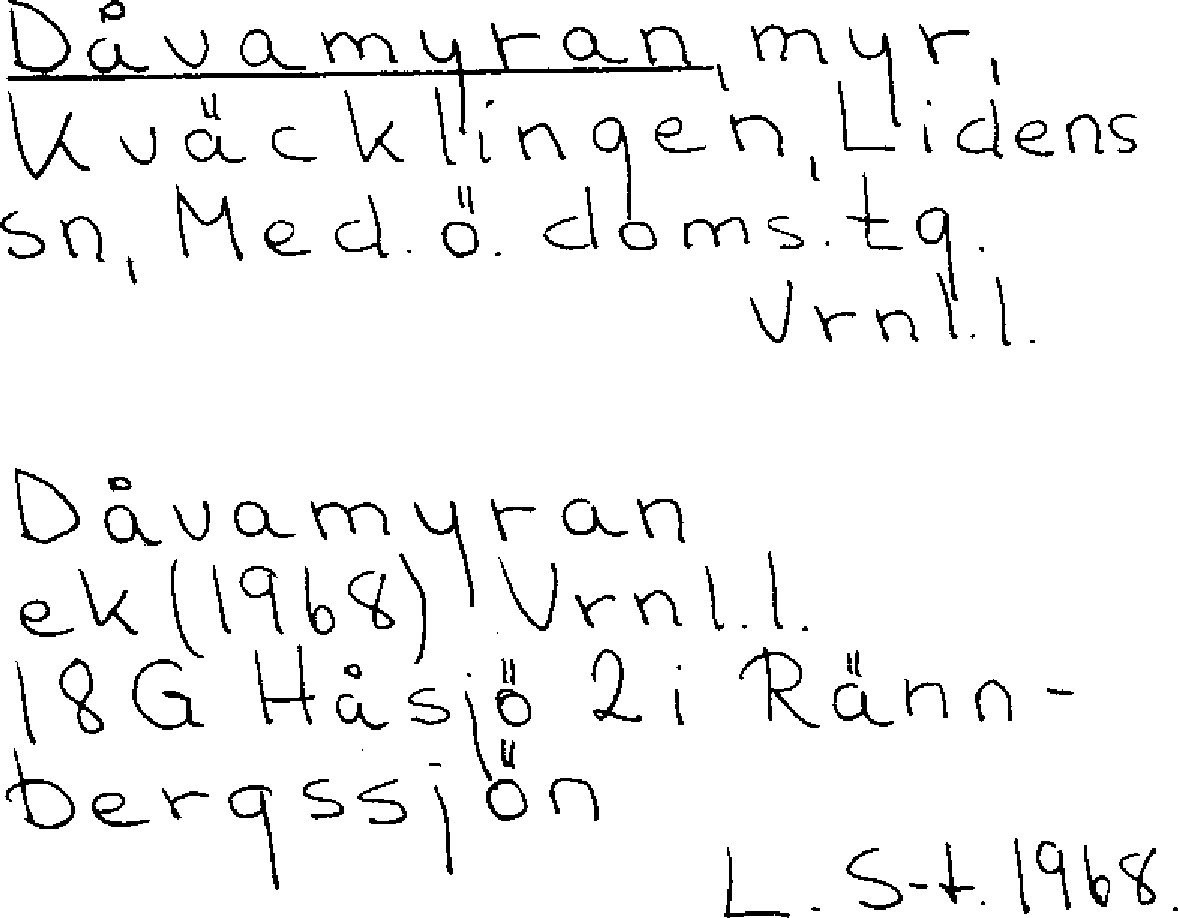 Dåvamyran, myr,
Kväcklingen, Lidens
sn, Med. ö. doms. tg.
Vrnl.l.
Dåvamyran
ek (1968) Vrnl.l.
18G Håsjö 2i Ränn-
bergssjön
L. S-t. 1968.